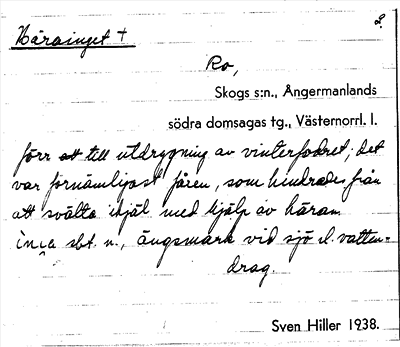 2.
Härainget +
Ro,
Skogs s:n., Ångermanlands
södra domsagas tg., Västernorrl. l.
förr att till utdrygning av vinterfodret; det
var förnämligast fåren, som hindrades från
att svälta ihjäl med hjälp av häran
sbt. n., ängsmark vid sjö el. vatten-
drag.
Sven Hiller 1938.